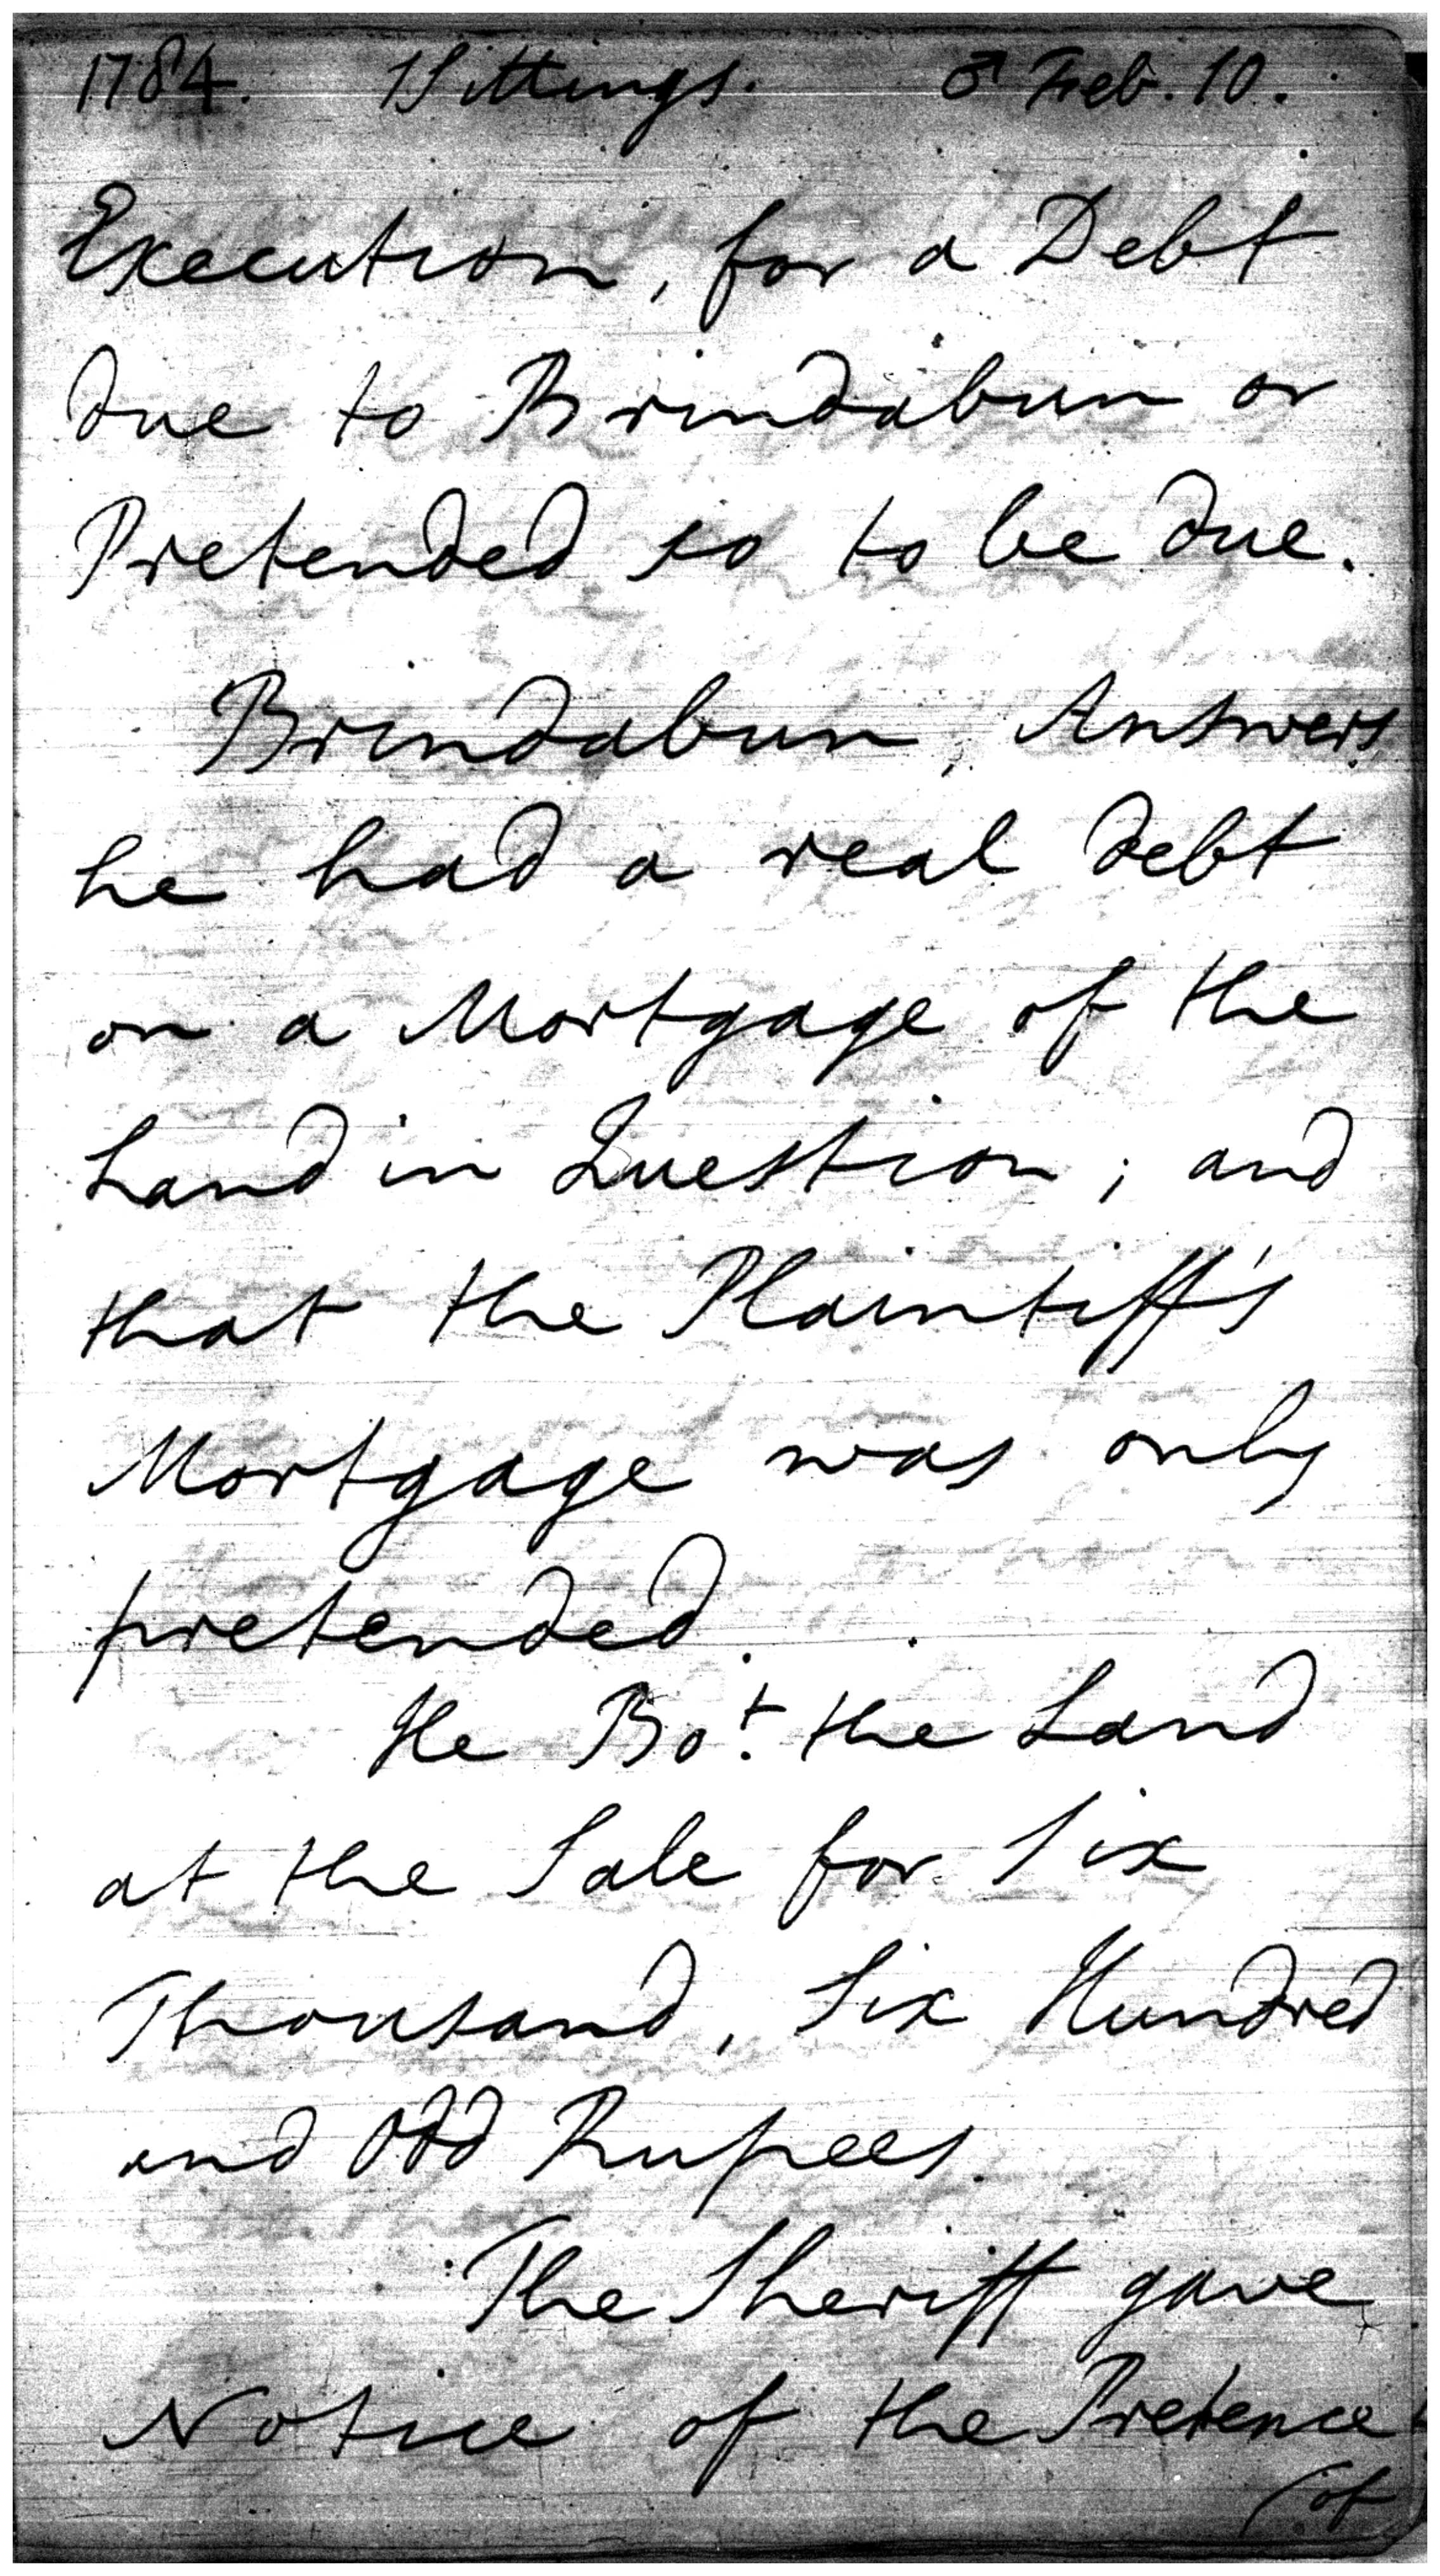 1784. Sittings. ♂ Feb. 10.
Execution, for a Debt
due to Brindabun or
Pretended so to be due.
Brindabun, Answers
he had a real debt
on a Mortgage of the
Land in Question; and
that the Plaintiff's
Mortgage was only
pretended.
He Bot. the Land
at the Sale for Six
Thousand, Six Hundred
and Odd Rupees.
The Sheriff gave
Notice of the Pretence
(of